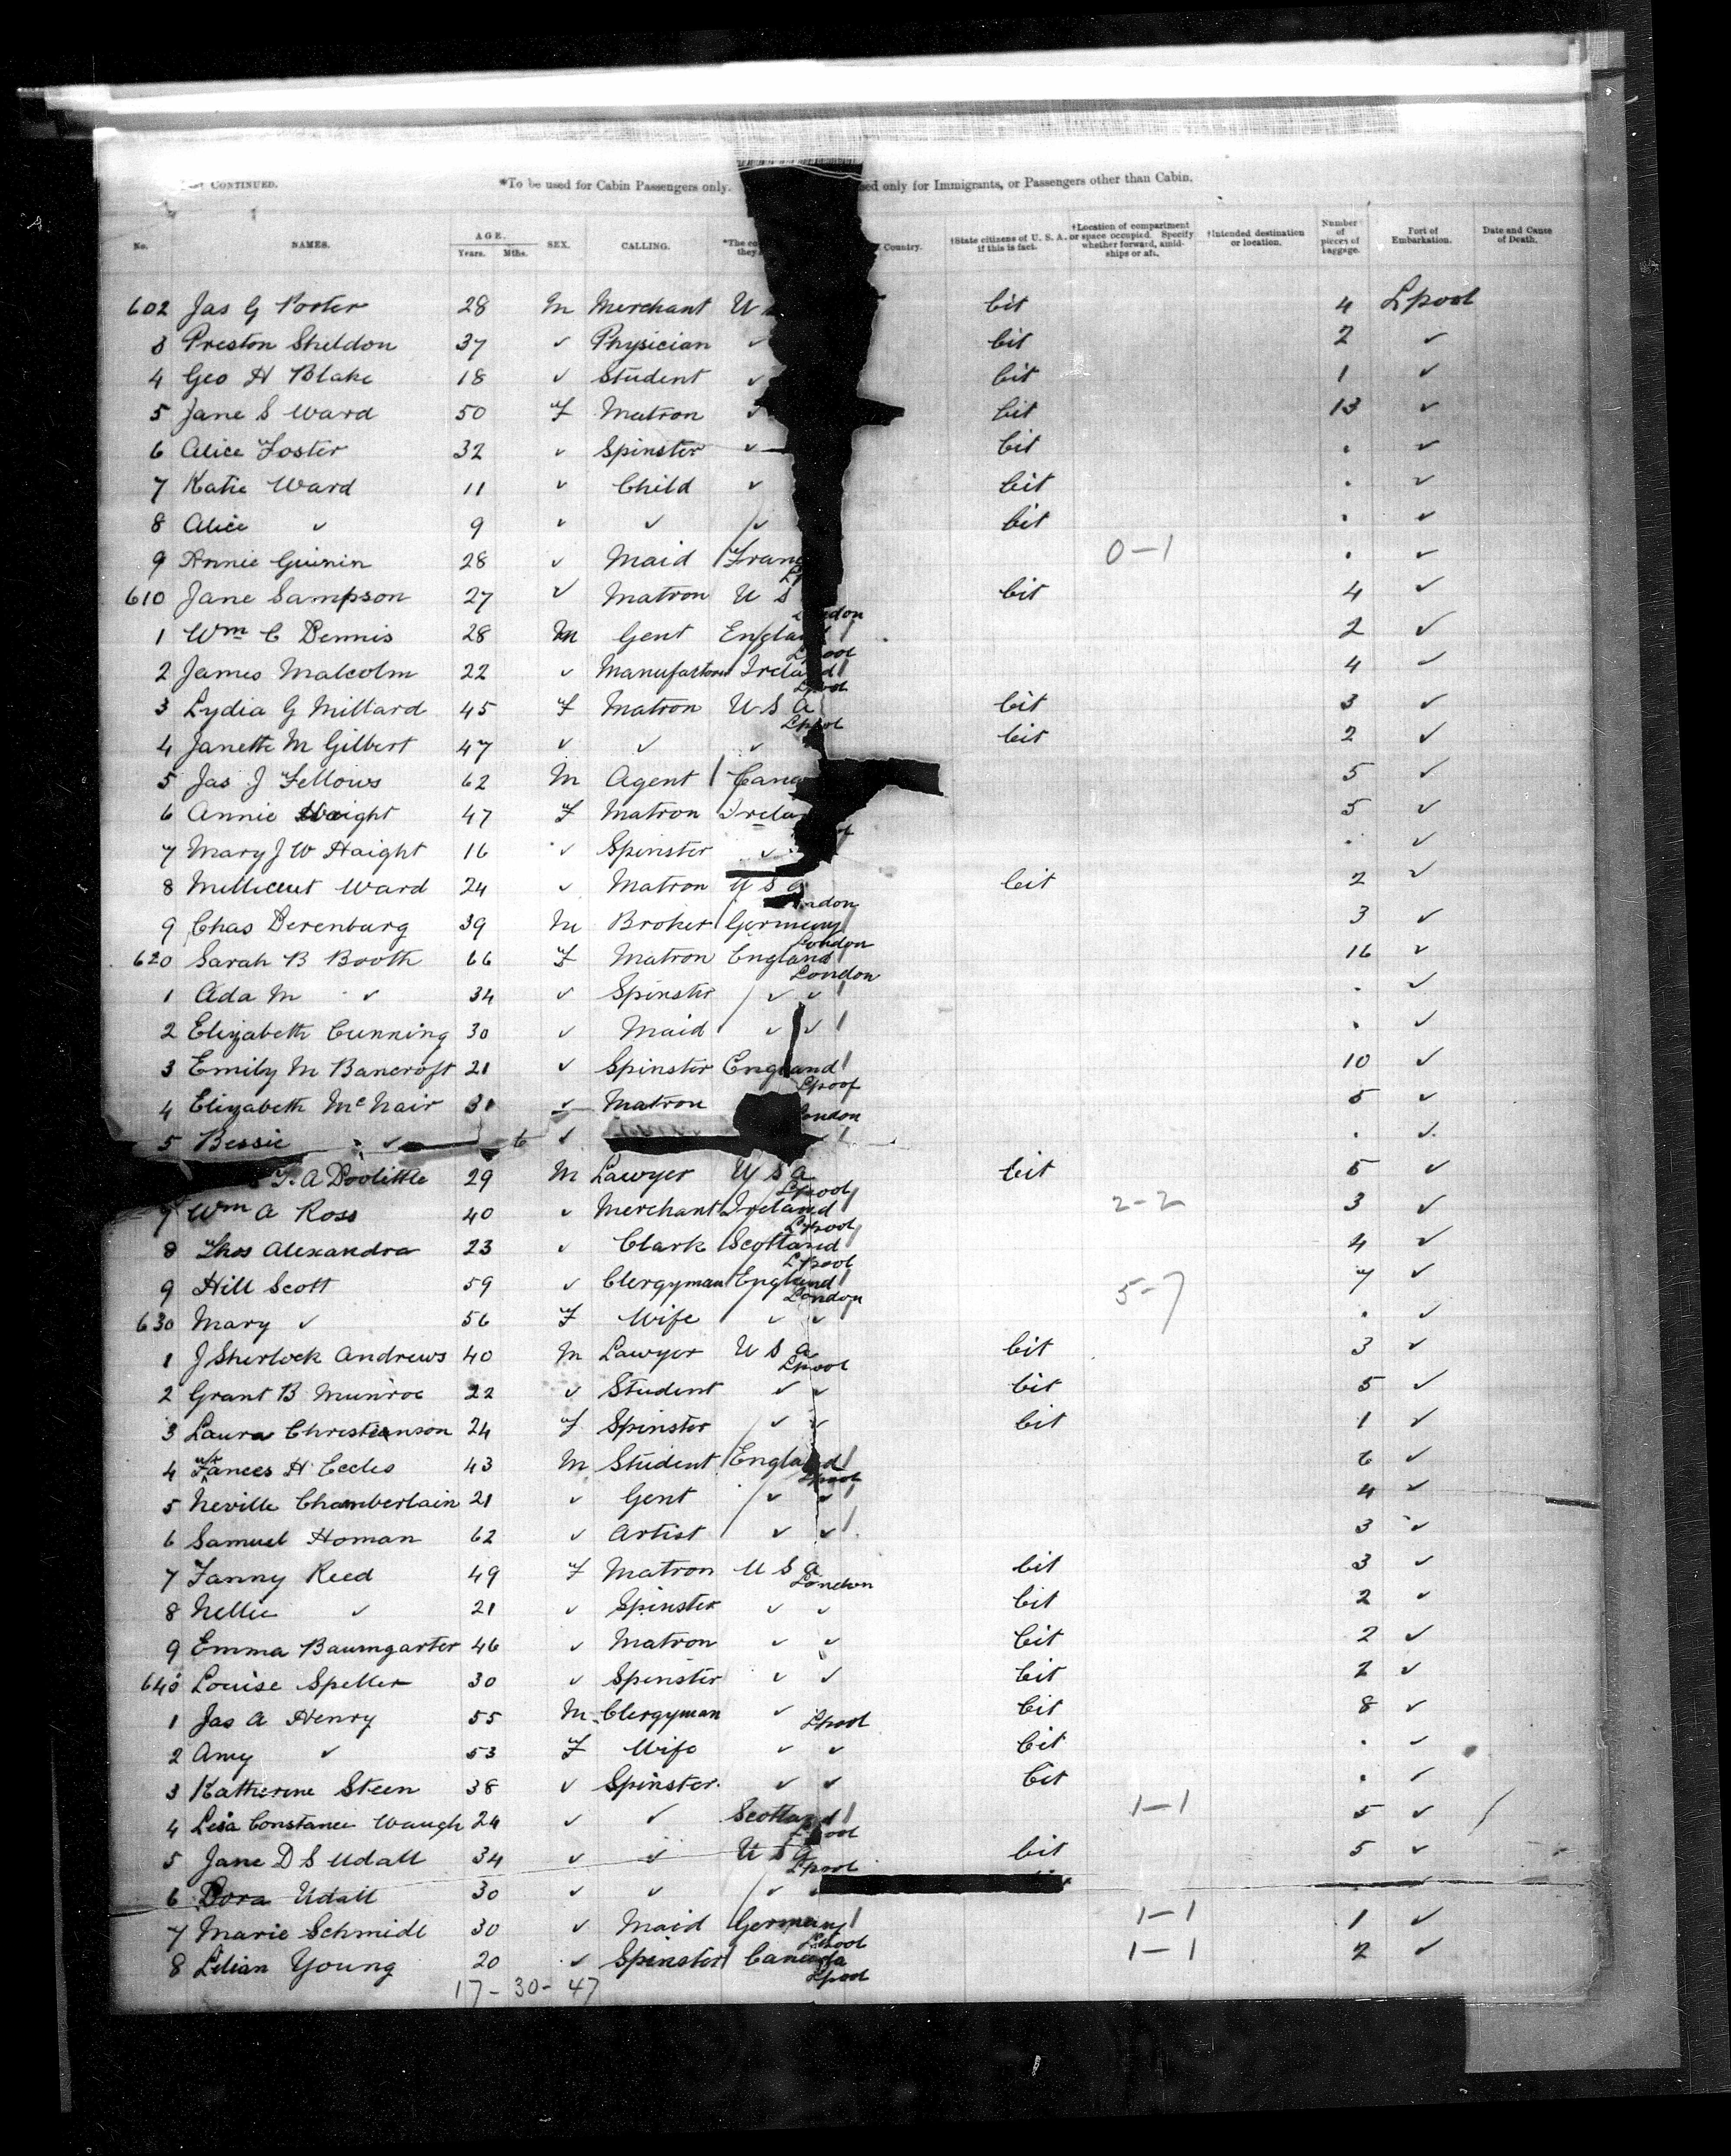 CONTINUED. *To be used for Cabin Passengers only. ed only for Immigrants, or Passengers other than Cabin.
No. NAMES. AGE. Years. Mths. SEX. CALLING. *The co they Country. †State citizens of U. S. A. if this is fact. †Location of compartment or space occupied. Specify whether forward, amidships or aft. †Intended destination or location. Number of pieces of baggage. Port of Embarkation. Date and Cause of Death.
602 Jas G Porter 28 M Merchant U Cit 4 Lpool
3 Preston Sheldon 37 ✓ Physician ✓ Cit 2 ✓
4 Geo H Blake 18 ✓ Student ✓ Cit 1 ✓
5 Jane S Ward 50 F Matron ✓ Cit 13 ✓
6 Alice Foster 32 ✓ Spinster ✓ Cit . ✓
7 Katie Ward 11 ✓ Child ✓ Cit . ✓
8 Alice ✓ 9 ✓ ✓ ✓ Cit . ✓
9 Annie Guinin 28 ✓ Maid Fran 0-1 . ✓
610 Jane Sampson 27 ✓ Matron U S Cit 4 ✓
1 Wm C Dennis 28 M Gent England 2 ✓
2 James Malcolm 22 ✓ Ireland Lpool 4 ✓
3 Lydia G Millard 45 F Matron U S A Lpool Cit 3 ✓
4 Janette M Gilbert 47 ✓ ✓ ✓ Lpool Cit 2 ✓
5 Jas J Fellows 62 M Agent Cana 5 ✓
6 Annie Haight 47 F Matron Irela 5 ✓
7 Mary J W Haight 16 ✓ Spinster ✓ . ✓
8 Millicent Ward 24 ✓ Matron U S A Cit 2 ✓
9 Chas Derenburg 39 M Broker Germany London 3 ✓
620 Sarah B Booth 66 F Matron England London 16 ✓
1 Ada M ✓ 34 ✓ Spinster ✓ ✓ London . ✓
2 Elizabeth Cunning 30 ✓ Maid ✓ ✓ . ✓
3 Emily M Bancroft 21 ✓ Spinster England 10 ✓
4 Elizabeth McNair 31 ✓ Matron Lpool 5 ✓
5 Bessie ✓ 6 ✓ London . ✓
T. A Doolittle 29 M Lawyer U S A Cit 5 ✓
7 Wm A Ross 40 ✓ Merchant Ireland Lpool 2-2 3 ✓
8 Thos Alexandra 23 ✓ Clark Scotland Lpool 4 ✓
9 Hill Scott 59 ✓ Clergyman England Lpool 5-7 7 ✓
630 Mary ✓ 56 F Wife ✓ ✓ London . ✓
1 J Sherlock Andrews 40 M Lawyer U S A Cit 3 ✓
2 Grant B Munroe 22 ✓ Student ✓ ✓ Lpool Cit 5 ✓
3 Laura Christianson 24 F Spinster ✓ ✓ Cit 1 ✓
4 Frances H Eccles 43 M Student England 6 ✓
5 Neville Chamberlain 21 ✓ Gent ✓ ✓ Lpool 4 ✓
6 Samuel Homan 62 ✓ Artist ✓ ✓ 3 ✓
7 Fanny Reed 49 F Matron U S A Cit 3 ✓
8 Nellie ✓ 21 ✓ Spinster ✓ ✓ London Cit 2 ✓
9 Emma Baumgarter 46 ✓ Matron ✓ ✓ Cit 2 ✓
640 Louise Speller 30 ✓ Spinster ✓ ✓ Cit 2 ✓
1 Jas A Henry 55 M Clergyman ✓ Lpool Cit 8 ✓
2 Amy ✓ 53 F Wife ✓ ✓ Cit . ✓
3 Katherine Steen 38 ✓ Spinster ✓ ✓ Cit . ✓
4 Constance Waugh 24 ✓ ✓ Scotland 1-1 5 ✓
5 Jane D S Udall 34 ✓ ✓ U S A Lpool Cit 5 ✓
6 Dora Udall 30 ✓ ✓ ✓ Lpool
7 Marie Schmidt 30 ✓ Maid Germany 1-1 1 ✓
8 Lilian Young 20 ✓ Spinster Canada Lpool 1-1 2 ✓
17-30-47 Lpool